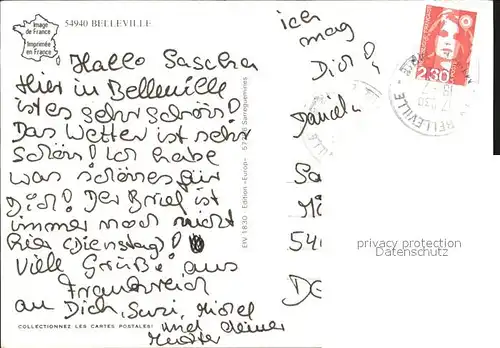 Image
de France
Imprimée
en France
54940 BELLEVILLE
Hallo Sascha
Hier in Belleville
ist es sehr schön!
Das Wetter ist sehr
schön! Ich habe
was schönes für
Dich! Der Brief ist
immer noch nicht
hier (Dienstag)!
Viele Grüße aus
Frankreich
an Dich, Susi, Michel
und deiner
Mutter
COLLECTIONNEZ LES CARTES POSTALES!
EW 1830 Edition «Europ» Sarreguemines
ich
mag
Dich!
Daniela
2,30
BELLEVILLE
privacy protection
Datenschutz